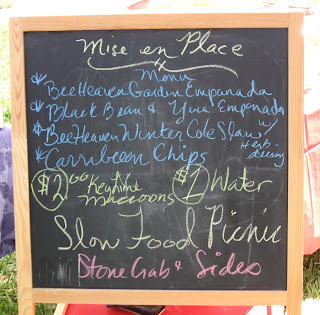 Mise en Place
Menu
* Bee Heaven Garden Empanada
* Black Bean & Yuca Empanada
* Bee Heaven Winter Cole Slaw w/
Herb dressing
* Carribean Chips
$2.00 Key lime macaroons $1 Water
Slow Food Picnic
Stone Crab & Sides